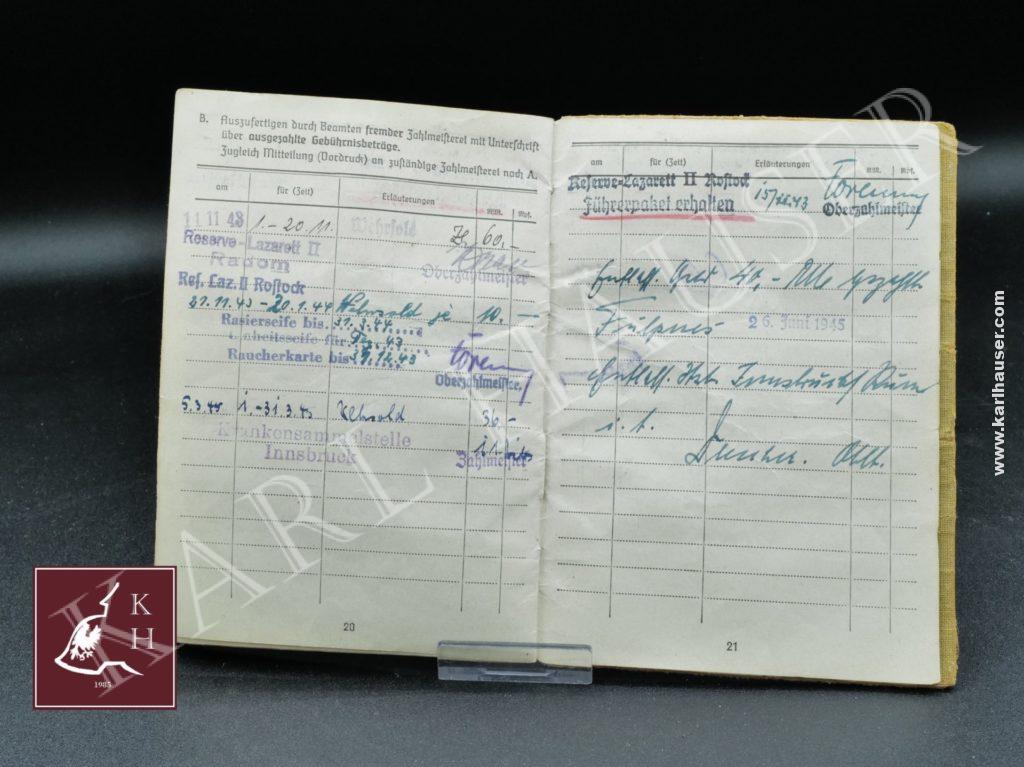 B. Auszufertigen durch Beamten fremder Zahlmeisterei mit Unterschrift
über ausgezahlte Gebührnisbeträge.
Zugleich Mitteilung (Vordruck) an zuständige Zahlmeisterei nach A.
am für (Zeit) Erläuterungen RM. Rpf.
11 11 43 1.-20.11. Wehrsold 60.-
Reserve-Lazarett II
Radom
Oberzahlmeister
Res. Laz. II Rostock
21.11.43-20.1.44 Wehrsold je 10.-
Rasierseife bis 31.3.44
Einheitsseife für 43
Raucherkarte bis 31.12.43
Oberzahlmeister
5.3.45 1.-31.3.45 Wehrsold 36.-
Krankensammelstelle
Innsbruck
Zahlmeister
20
am für (Zeit) Erläuterungen RM. Rpf.
Reserve-Lazarett II Rostock
Führerpaket erhalten
Oberzahlmeister
Entlass. Geld 40,-
Fulpmes 26. Juni 1945
Entlass. Innsbruck
21
KARL HAUSER
www.karlhauser.com
K
H
1985